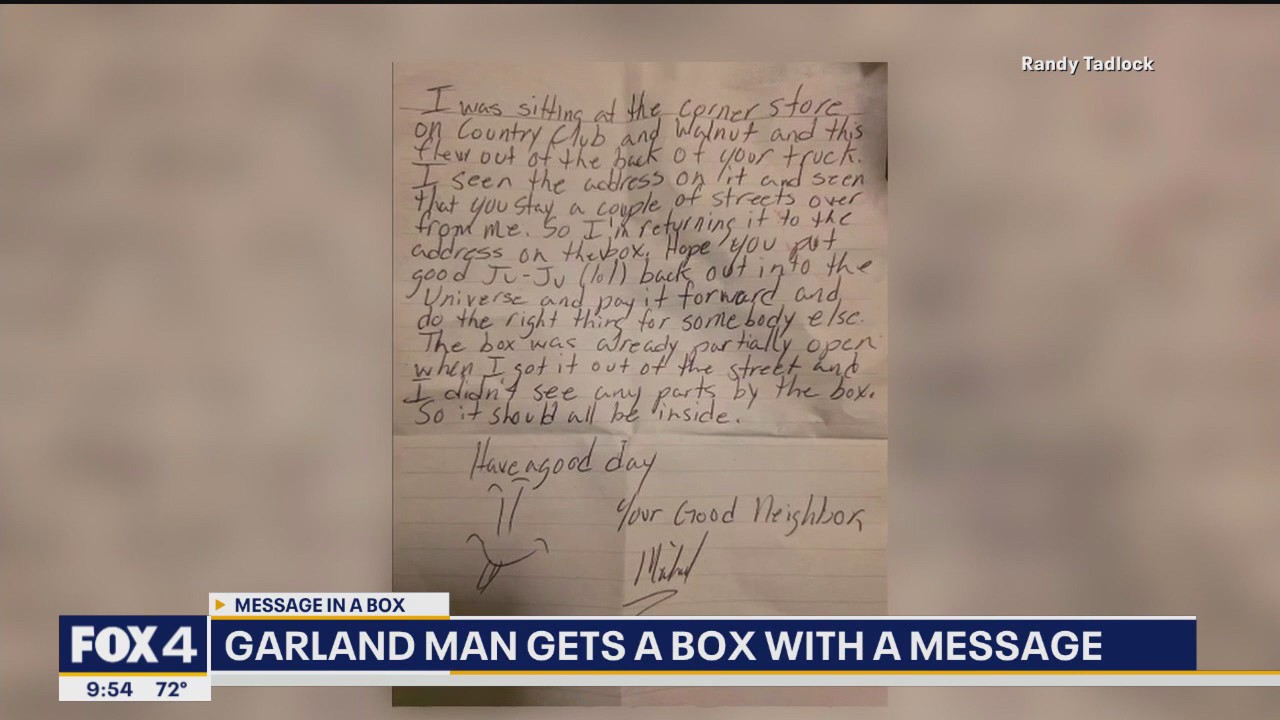 Randy Tadlock
I was sitting at the corner store
on Country Club and Walnut and this
flew out of the back of your truck.
I seen the address on it and seen
that you stay a couple of streets over
from me. So I'm returning it to the
address on the box. Hope you put
good Ju-Ju (lol) back out into the
Universe and pay it forward and
do the right thing for somebody else.
The box was already partially open
when I got it out of the street and
I didn't see any parts by the box.
So it should all be inside.
Have a good day
Your Good Neighbor
MESSAGE IN A BOX
FOX 4
GARLAND MAN GETS A BOX WITH A MESSAGE
9:54 72°